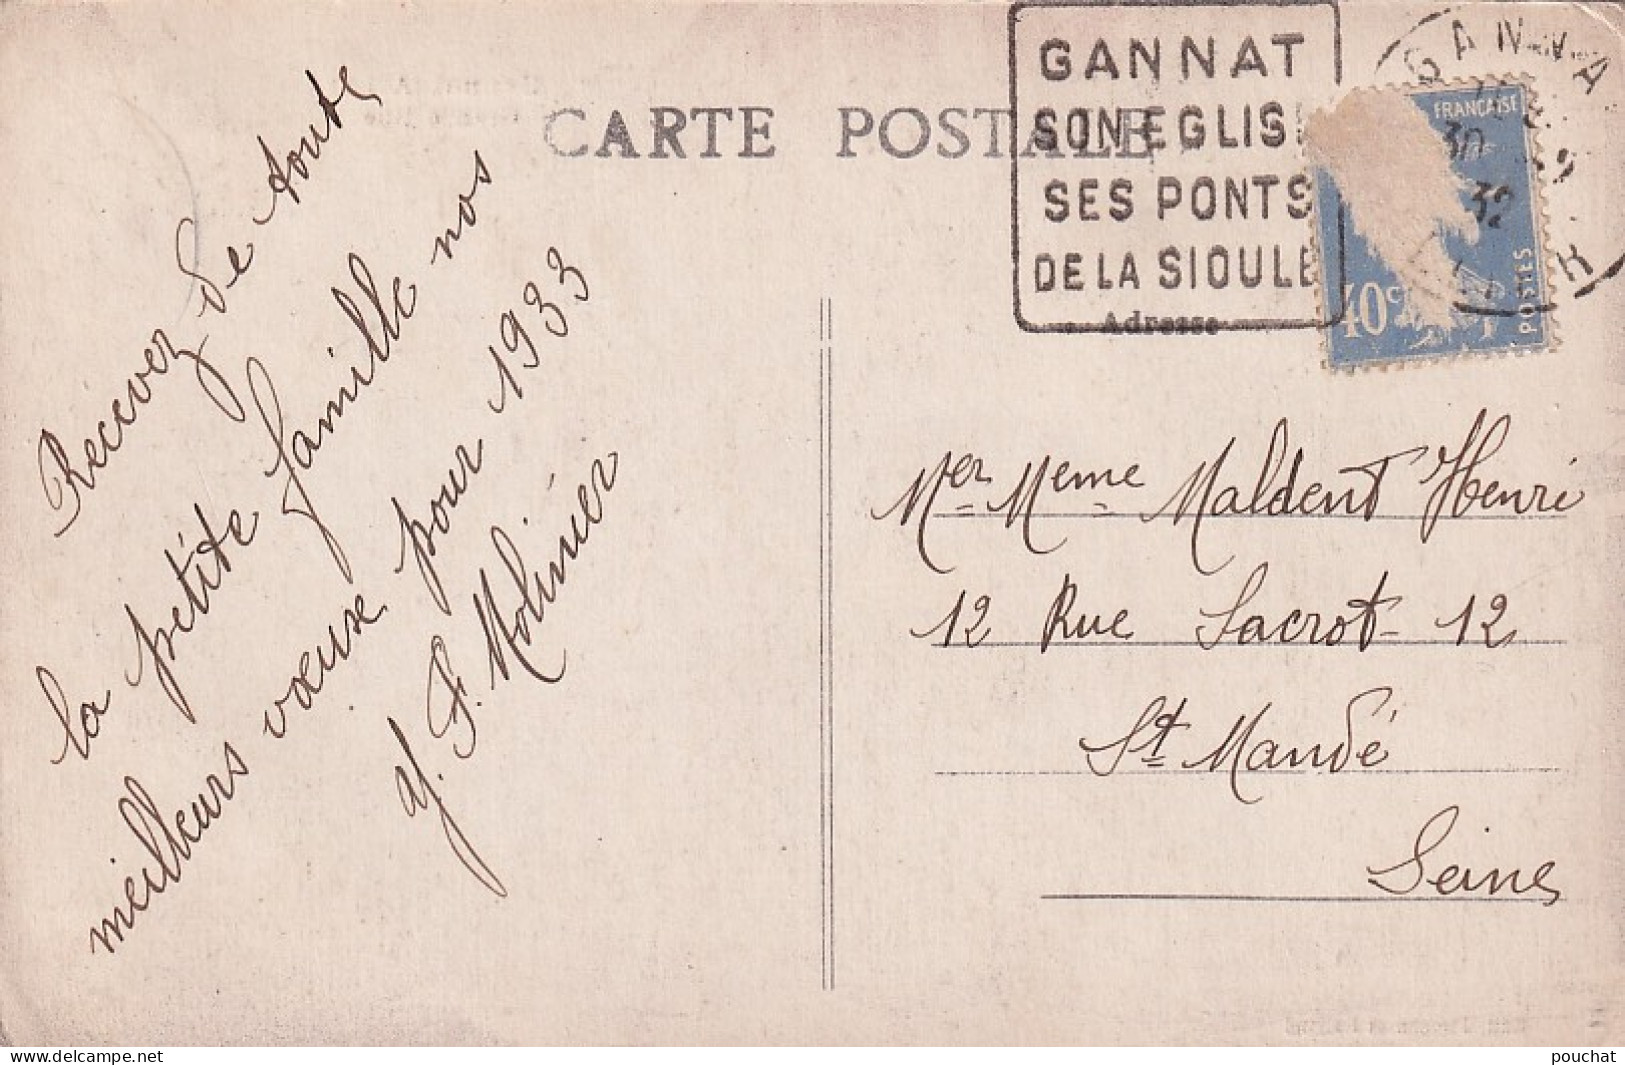 CARTE POSTALE
GANNAT
SON EGLISE
SES PONTS
DE LA SIOULE
GANNA
30
32
FRANÇAISE
POSTES
40c
Adresse
Recevez de toute
la petite famille nos
meilleurs vœux pour 1933
F. Molinier
Mer Meme Maldent Henri
12 Rue Sacrot 12
St Mandé
Seine
delcampe.net
pouchat